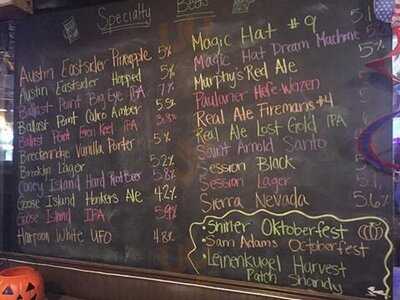 Specialty Beers
Austin Eastsider Pineapple 5%
Austin Eastsider Hopped 5%
Ballast Point Big Eye IPA 7%
Ballast Point Calico Amber 5.5%
Ballast Point Even Keel IPA 3.8%
Breckenridge Vanilla Porter 5%
Brooklyn Lager 5.2%
Coney Island Hard Root Beer 5.8%
Goose Island Honkers Ale 4.2%
Goose Island IPA 5.9%
Harpoon White UFO 4.8%
Magic Hat #9 5.1
Magic Hat Dream Machine
Murphy's Red Ale 5%
Paulaner Hefe-Weizen
Real Ale Firemans #4
Real Ale Lost Gold IPA
Saint Arnold Santo
Session Black
Session Lager
Sierra Nevada 5.6%
• Shiner Oktoberfest
• Sam Adams Octoberfest
• Leinenkugel Harvest
Patch Shandy